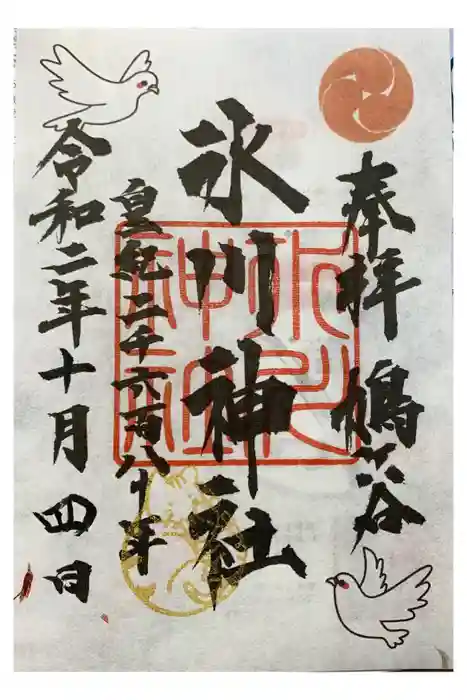 奉拝 鳩ヶ谷
氷川神社
氷川神社
皇紀二千六百八十年
令和二年十月四日